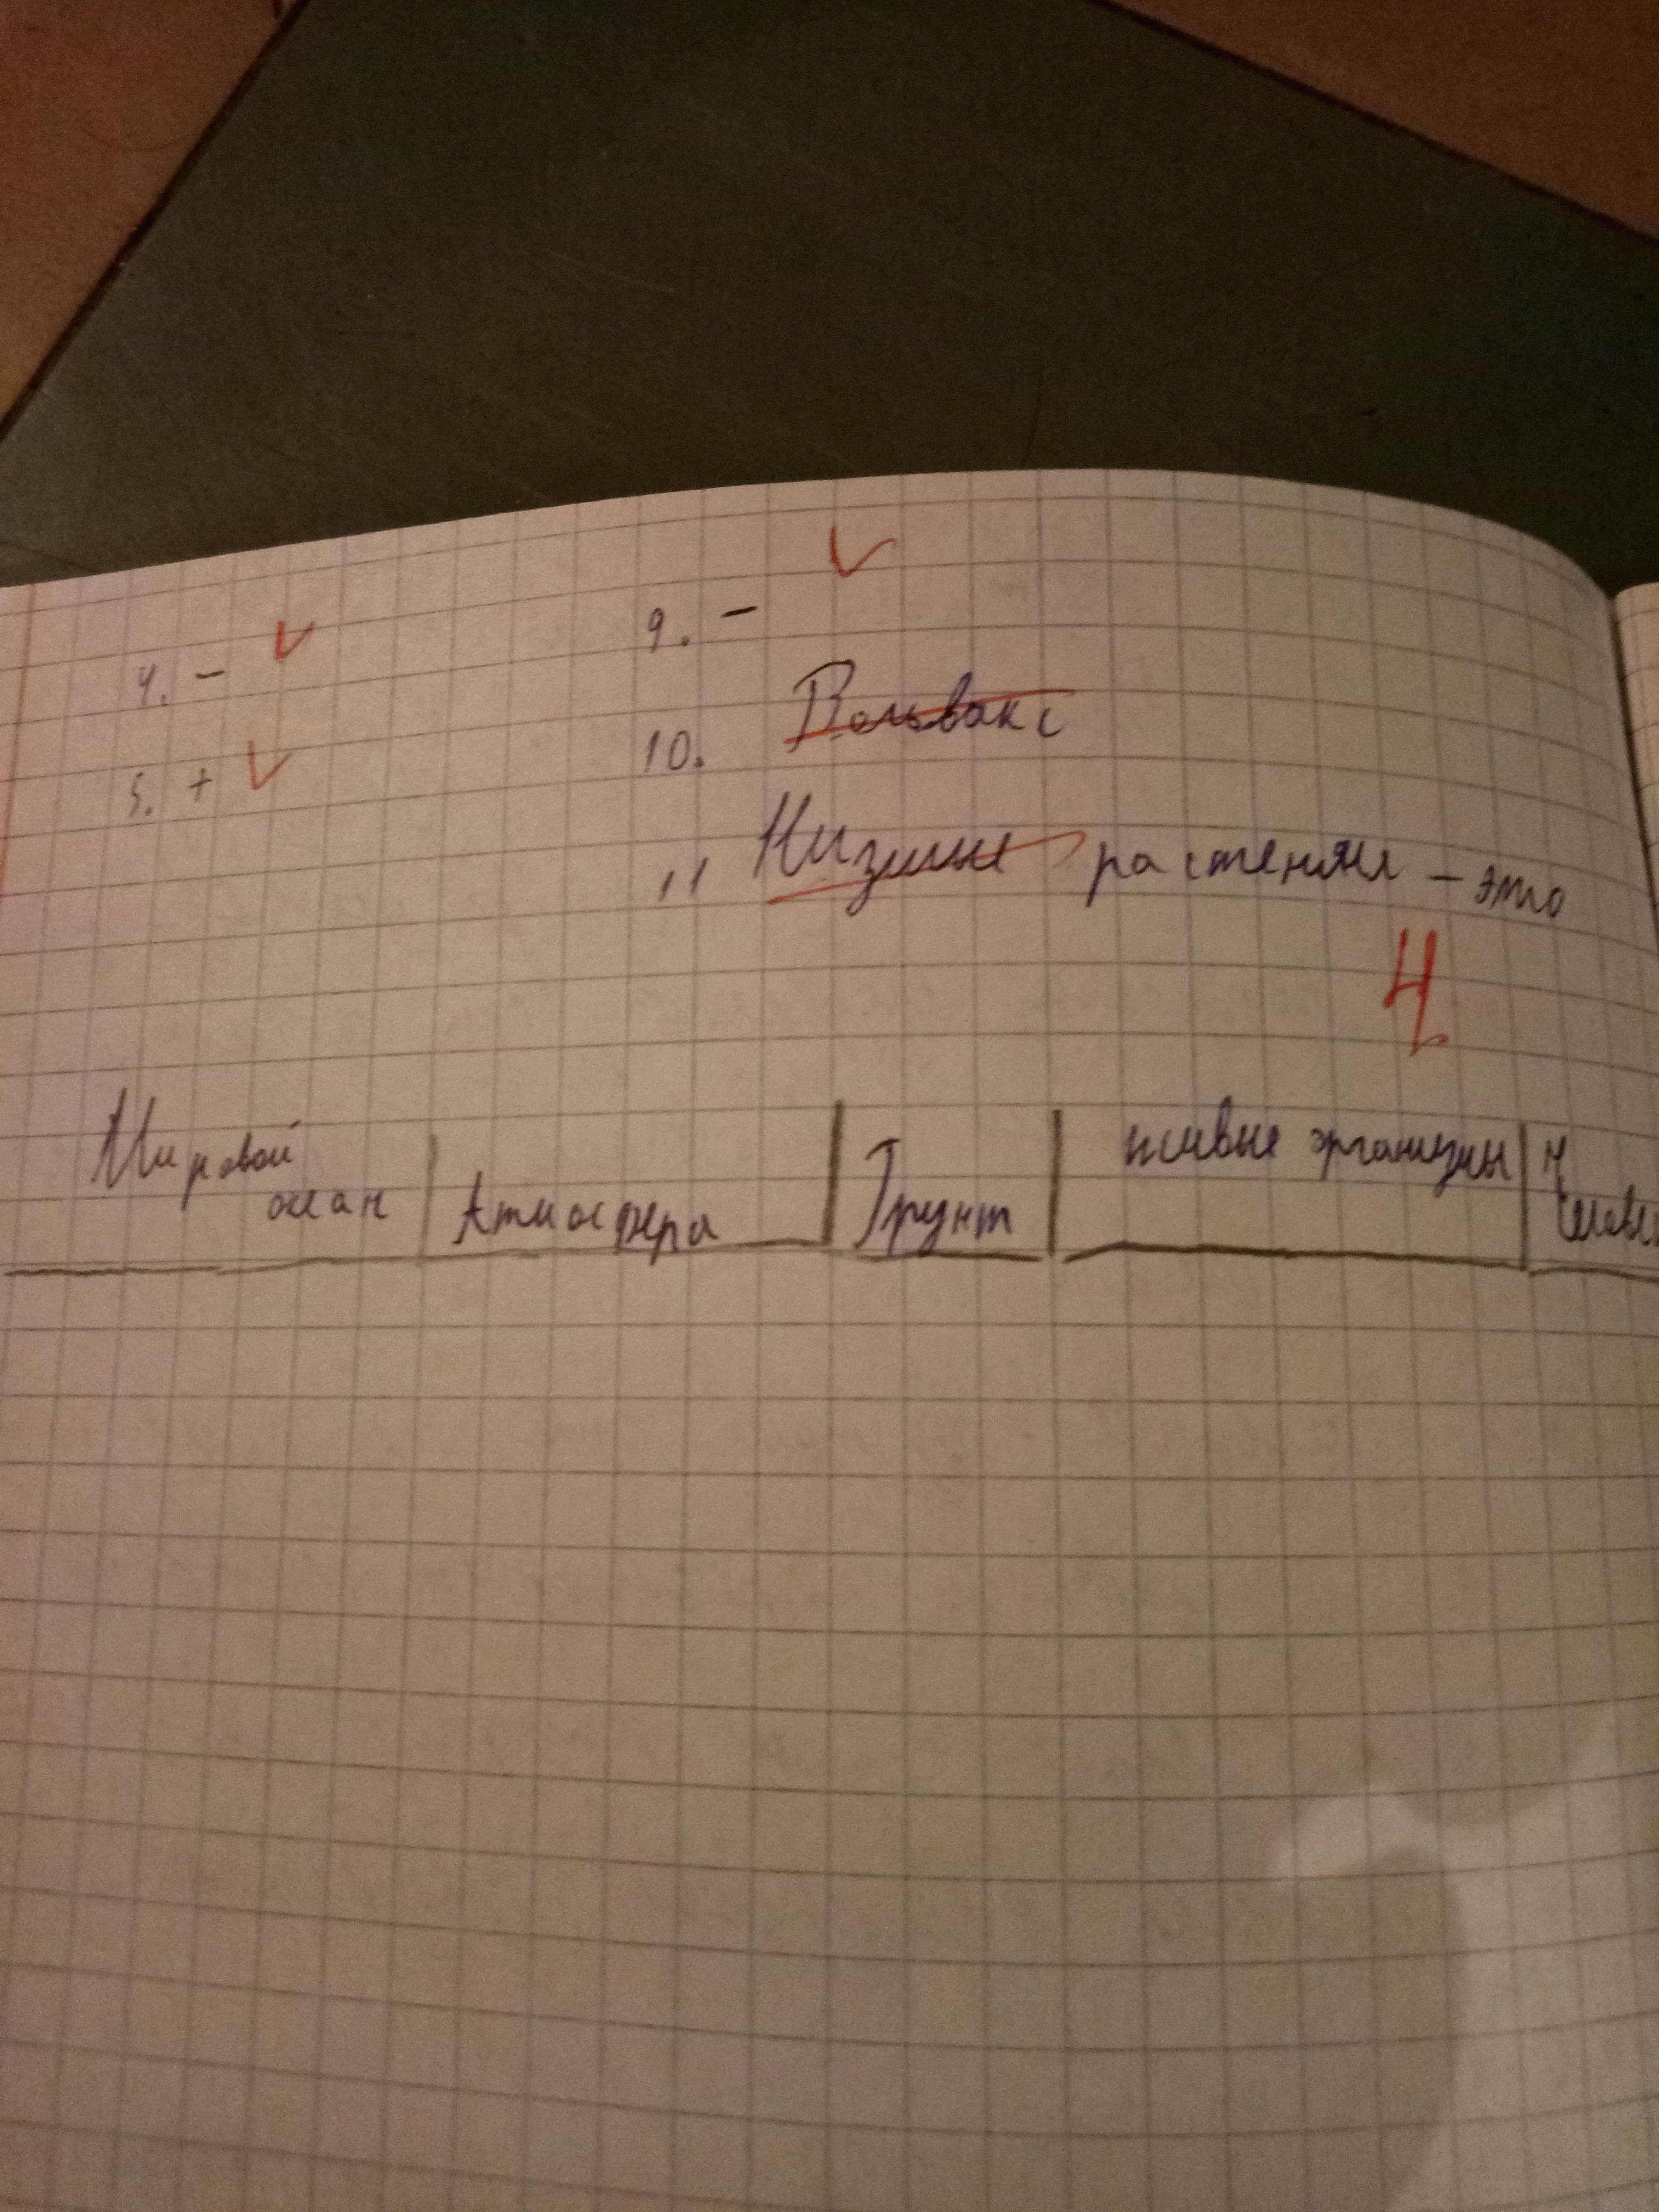 4. -
9. -
5. +
10. Вольвакс
11 Низшие растения - это
4
Мировой океан
Атмосфера
Грунт
живые организмы